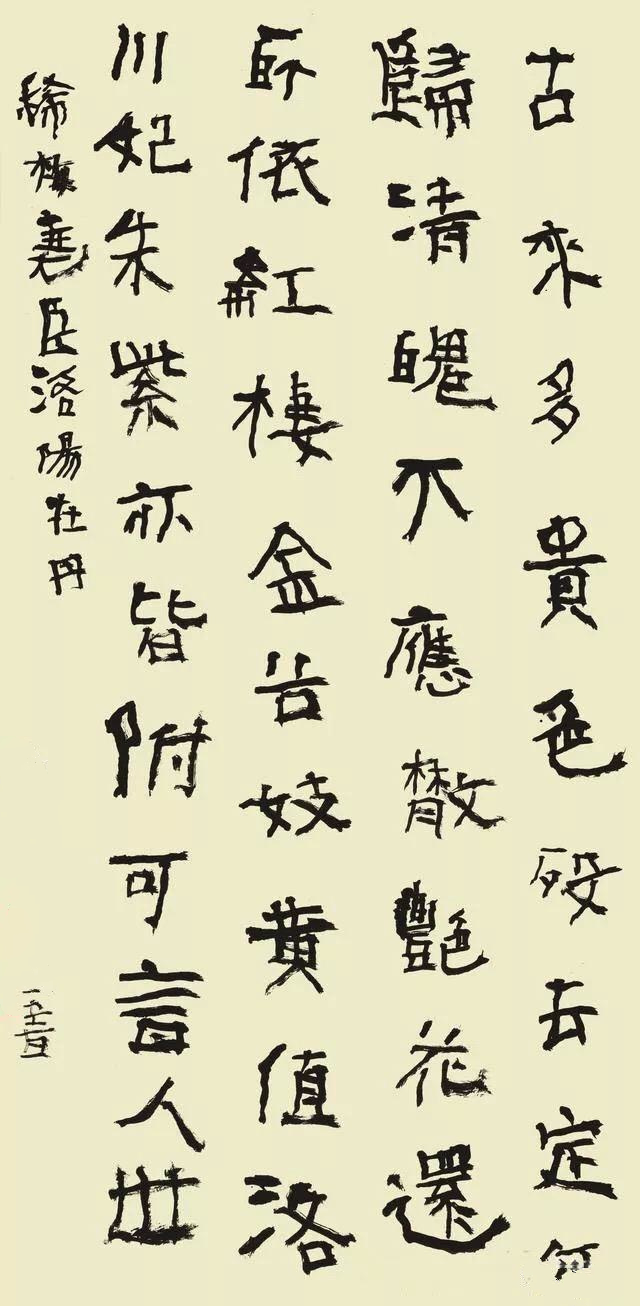 古來多貴色歿去定何
歸清魄不應散艷花還
所依紅棲金谷妓黄值洛
川妃朱紫亦皆附可言人世
稀梅堯臣洛陽牡丹